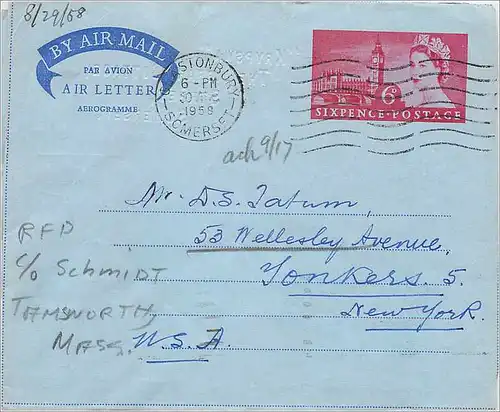 8/29/58
BY AIR MAIL
PAR AVION
AIR LETTER
AEROGRAMME
STONBURY
6-PM
1958
SOMERSET
6D
SIXPENCE·POSTAGE
ach 9/17
Mr. D.S. Tatum,
53 Wellesley Avenue,
Yonkers. 5.
New York.
U.S.A.
RFD
c/o SCHMIDT
TAMSWORTH,
MASS.